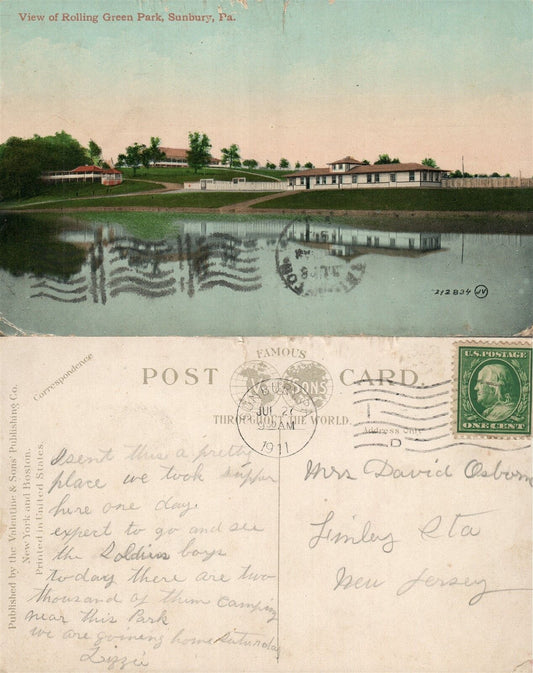 View of Rolling Green Park, Sunbury, Pa.
212834 JV
Published by the Valentine & Sons' Publishing Co.
New York and Boston.
Printed in United States.
Correspondence
FAMOUS
POST CARD.
VALENTINE & SONS
THROUGHOUT THE WORLD.
Address Only
SUNBURY
JUL 27
AM
1911
D
U.S.POSTAGE
ONE CENT
Isent this a pretty
place we took supper
here one day
expect to go and see
the Soldiers boys
today there are two
thousand of them camping
near this Park
we are goining home Suturday
Lizzie
Mrs David Osborn
Linley Sta
New Jersey